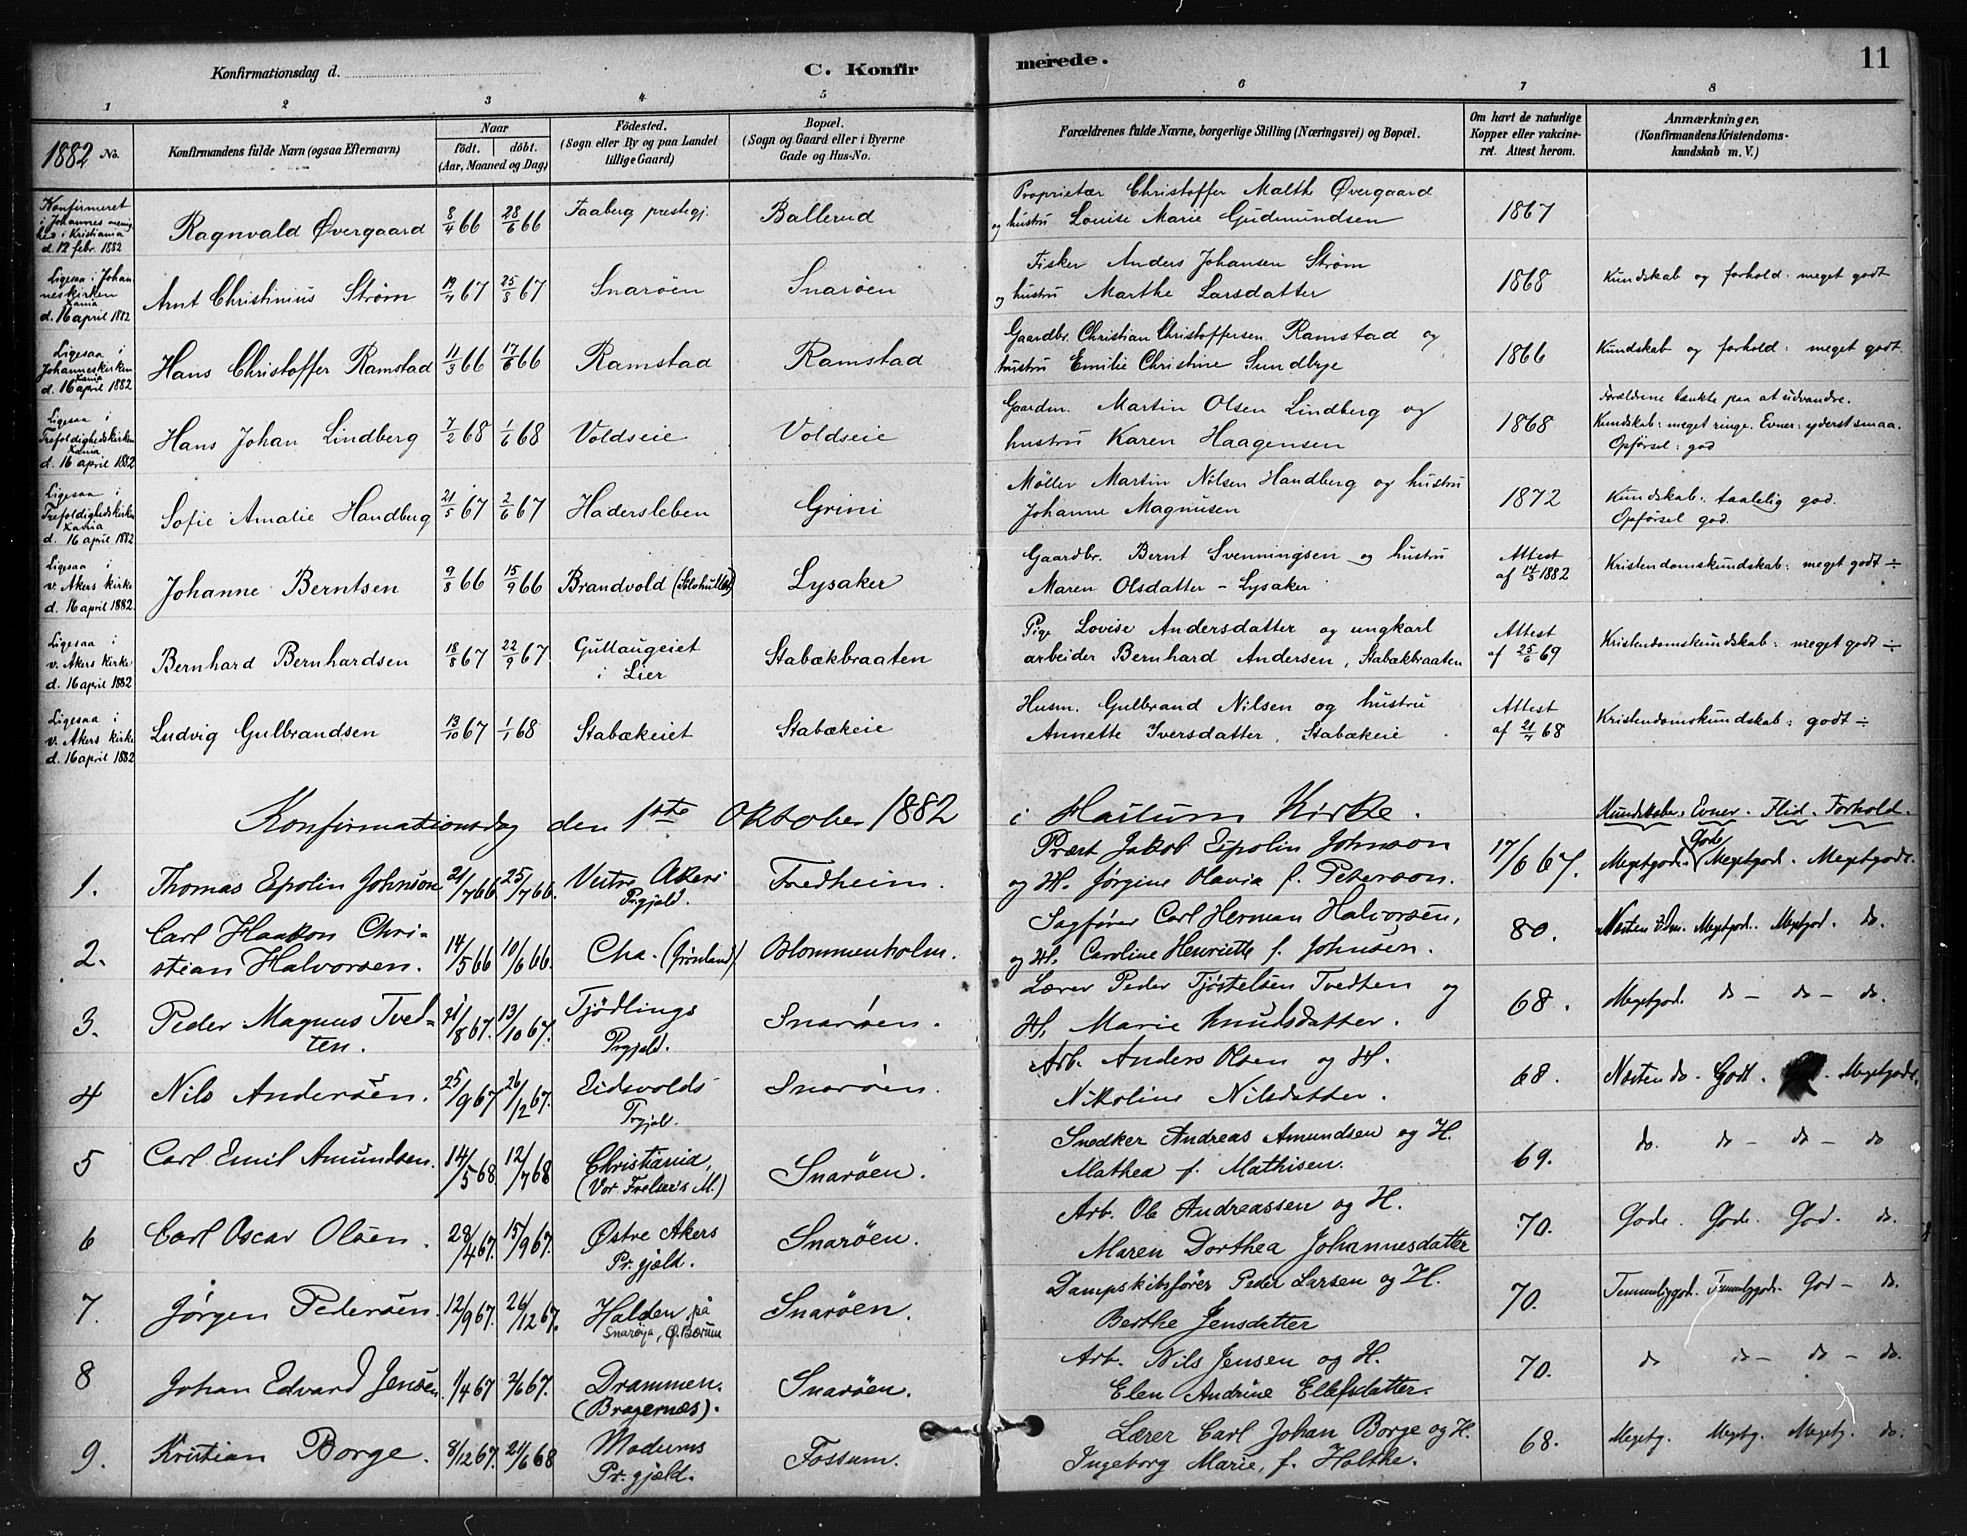 Konfirmationsdag d. C. Konfirmerede. 11
1 2 3 4 5 6 7 8
1882 No.
Konfirmandens fulde Navn (ogsaa Efternavn)
Naar født. døbt. (Aar, Maaned og Dag)
Fødested. (Sogn eller By og paa Landet tillige Gaard)
Bopæl. (Sogn og Gaard eller i Byerne Gade og Hus-No.
Forældrenes fulde Navne, borgerlige Stilling (Næringsvei) og Bopæl.
Om havt de naturlige Kopper eller vakcineret. Attest herom.
Anmærkninger. (Konfirmandens Kristendomskundskab m. V.)
Konfirmeret i Johannes menighed i Kristiania d. 12 febr. 1882
Ragnvald Øvergaard 8/4 66 28/6 66 Faaberg prestegj. Ballerud
Proprietær Christoffer Malthe Øvergaard
og hustru Louise Marie Gudmundsen 1867
Ligesaa i Johanneskirken Xania d. 16 april 1882
Arnt Christinius Strøm 19/4 67 25/8 67 Snarøen Snarøen
Fisker Anders Johansen Strøm
og hustru Marthe Larsdatter 1868 Kundskab og forhold: meget godt
Ligesaa i Johanneskirken Xania d. 16 april 1882
Hans Christoffer Ramstad 11/3 66 17/6 66 Ramstad Ramstad
Gaardbr. Christian Christoffersen Ramstad og
hustru Emilie Christine Sundbye 1866 Kundskab og forhold: meget godt.
Ligesaa i Trefoldighedskirken Xania d. 16 april 1882
Hans Johan Lindberg 7/2 68 1/6 68 Voldseie Voldseie
Gaardm. Martin Olsen Lindberg og
hustru Karen Haagensen 1868
Forældrene tænkte paa at udvandre.
Kundskab: meget ringe. Evner: yderst smaa.
Opførsel: god
Ligesaa i Trefoldighedskirken Xania d. 16 april 1882
Sofie Amalie Handberg 21/5 67 2/6 67 Hadersleben Grini
Møller Martin Nilsen Handberg og hustru
Johanne Magnusen 1872
Kundskab: taalelig god.
Opførsel god.
Ligesaa i v. Akers kirke d. 16 april 1882
Johanne Berntsen 9/8 66 15/9 66 Brandvold Lysaker
Gaardbr. Bernt Svenningsen og hustru
Maren Olsdatter - Lysaker
Attest af 14/3 1882 Kristendomskundskab: meget godt ÷
Ligesaa i v. Akers kirke d. 16 april 1882
Bernhard Bernhardsen 18/8 67 22/9 67 Gullaugeiet i Lier Stabækbraaten
Pige Lovise Andersdatter og ungkarl
arbeider Bernhard Andersen, Stabækbraaten
Attest af 25/6 69 Kristendomskundskab: meget godt ÷
Ligesaa i v. Akers kirke d. 16 april 1882
Ludvig Gulbrandsen 13/10 67 1/1 68 Stabækeiet Stabækeie
Husm. Gulbrand Nilsen og hustru
Annette Iversdatter, Stabækeie
Attest af 21/7 68 Kristendomskundskab: godt ÷
Konfirmationsdag den 1ste Oktober 1882 i Haslum Kirke.
Kundskaber. Evner. Flid. Forhold.
1. Thomas Epolin Johnson 21/7 66 25/7 66. Vestre Akers Prgjeld. Fredheim.
Præst Jakob Eipolin Johnson
og H. Jørgine Olavia f. Peterson. 17/6 67. Megetgode. Gode Megetgod. Megetgodt.
2. Carl Haakon Christian Halvorsen. 14/5 66 10/6 66. Cha. (Grønland) Blommenholm.
Sagfører Carl Herman Halvorsen,
og H. Caroline Henriette f. Johnsen. 80. Næsten do. Megetgod. Megetgod. do.
3. Peder Magnus Tvedten. 21/8 67. 13/10 67. Tjødlings Prgjeld. Snarøen.
Lærer Peder Tjøstelsen Tvedten og
H. Marie Knudsdatter. 68. Megetgod. do - do - do.
4 Nils Andersen. 25/9 67 26/12 67. Eidsvolds Prgjeld. Snarøen.
Arb. Anders Olsen og H.
Nikoline Nilsdatter. 68. Næsten do. Godt. Megetgodt.
5 Carl Emil Amundsen. 14/5 68 12/7 68 Christiania, (Vor Frelser's M.) Snarøen.
Snedker Andreas Amundsen og H.
Mathea f. Mathisen. 69. do. do - do - do
6 Carl Oscar Olsen. 28/4 67. 15/9 67. Østre Akers Pr. gjæld. Snarøen.
Arb. Ole Andreassen og H.
Maren Dorthea Johannesdatter 70. Gode. Gode. God. do.
7. Jørgen Pedersen. 12/9 67. 26/12 67. Halden på Snarøya, Ø. Bærum Snarøen.
Dampskibsfører Peder Larsen og H.
Berthe Jensdatter 70. Temmeliggod. Temmeliggode. God - do.
8 Johan Edvard Jensen. 1/4 67 2/6 67. Drammen. (Bragernæs). Snarøen.
Arb. Nils Jensen og H.
Elen Andrine Ellefsdatter. 70. do do - do - do.
9. Kristian Borge. 8/12 67. 21/6 68 Modums Pr. gjæld. Fossum.
Lærer Carl Johan Borge og H.
Ingeborg Marie, f. Holthe. 68. Megetg. Megetg. Megetg. do.